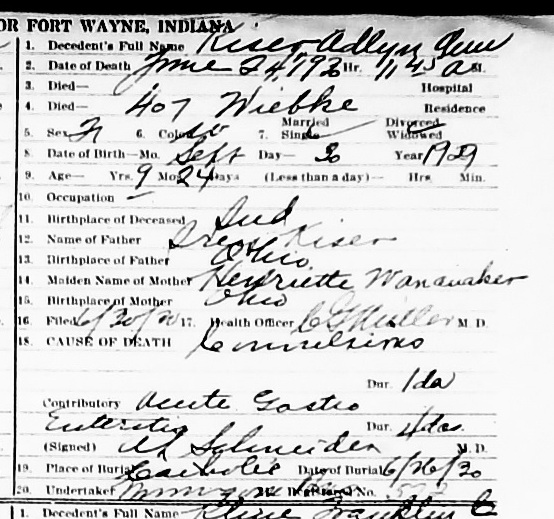 OR FORT WAYNE, INDIANA
1. Decedent's Full Name Kiser Adlyn
2. Date of Death June 24, 1930 Hr. 11 45 a M.
3. Died— Hospital
4. Died— 407 Wiebke Residence
5. Sex F 6. Color W 7. Married Single Divorced Widowed
8. Date of Birth—Mo. Sept Day— 30 Year 1929
9. Age— Yrs. Mos. 24 Days (Less than a day)— Hrs. Min.
10. Occupation —
11. Birthplace of Deceased Ind
12. Name of Father Kiser
13. Birthplace of Father Ohio
14. Maiden Name of Mother Henriette Wanamaker
15. Birthplace of Mother Ohio
16. Filed 6/30/30 17. Health Officer M. D.
18. CAUSE OF DEATH Convulsions
Dur. 1 da
Contributory Acute Gastro
Enteritis Dur. 4 das.
(Signed) Schneider M. D.
19. Place of Burial Catholic Date of Burial 6/26/30
20. Undertaker No.
1. Decedent's Full Name Kline Franklin C